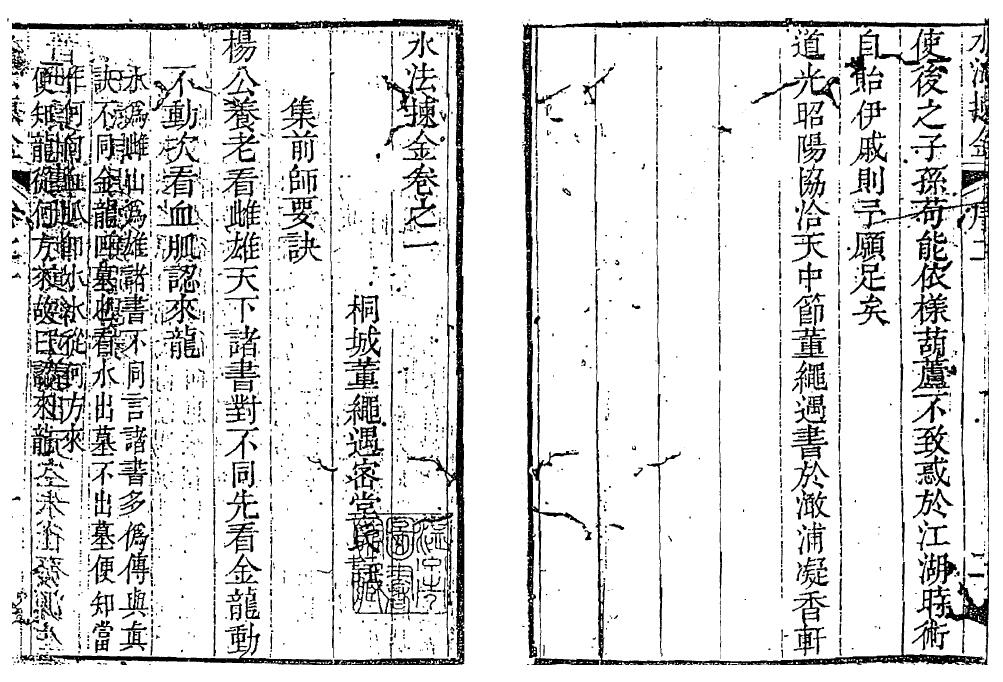 使後之子孫苟能依樣葫蘆不致惑於江湖時術
自貽伊戚則予願足矣
道光昭陽協洽天中節董繩遇書於澉浦凝香軒
水法揀金卷之一
桐城董繩遇密堂氏
集前師要訣
楊公養老看雌雄天下諸書對不同先看金龍動
不動次看血脈認來龍
水爲雌山爲雄諸書不同言諸書多僞傳與眞
訣不同金龍四墓也看水出墓不出墓便知當
作何向血脈即水水從何方來
便知龍從何方來故曰認來龍